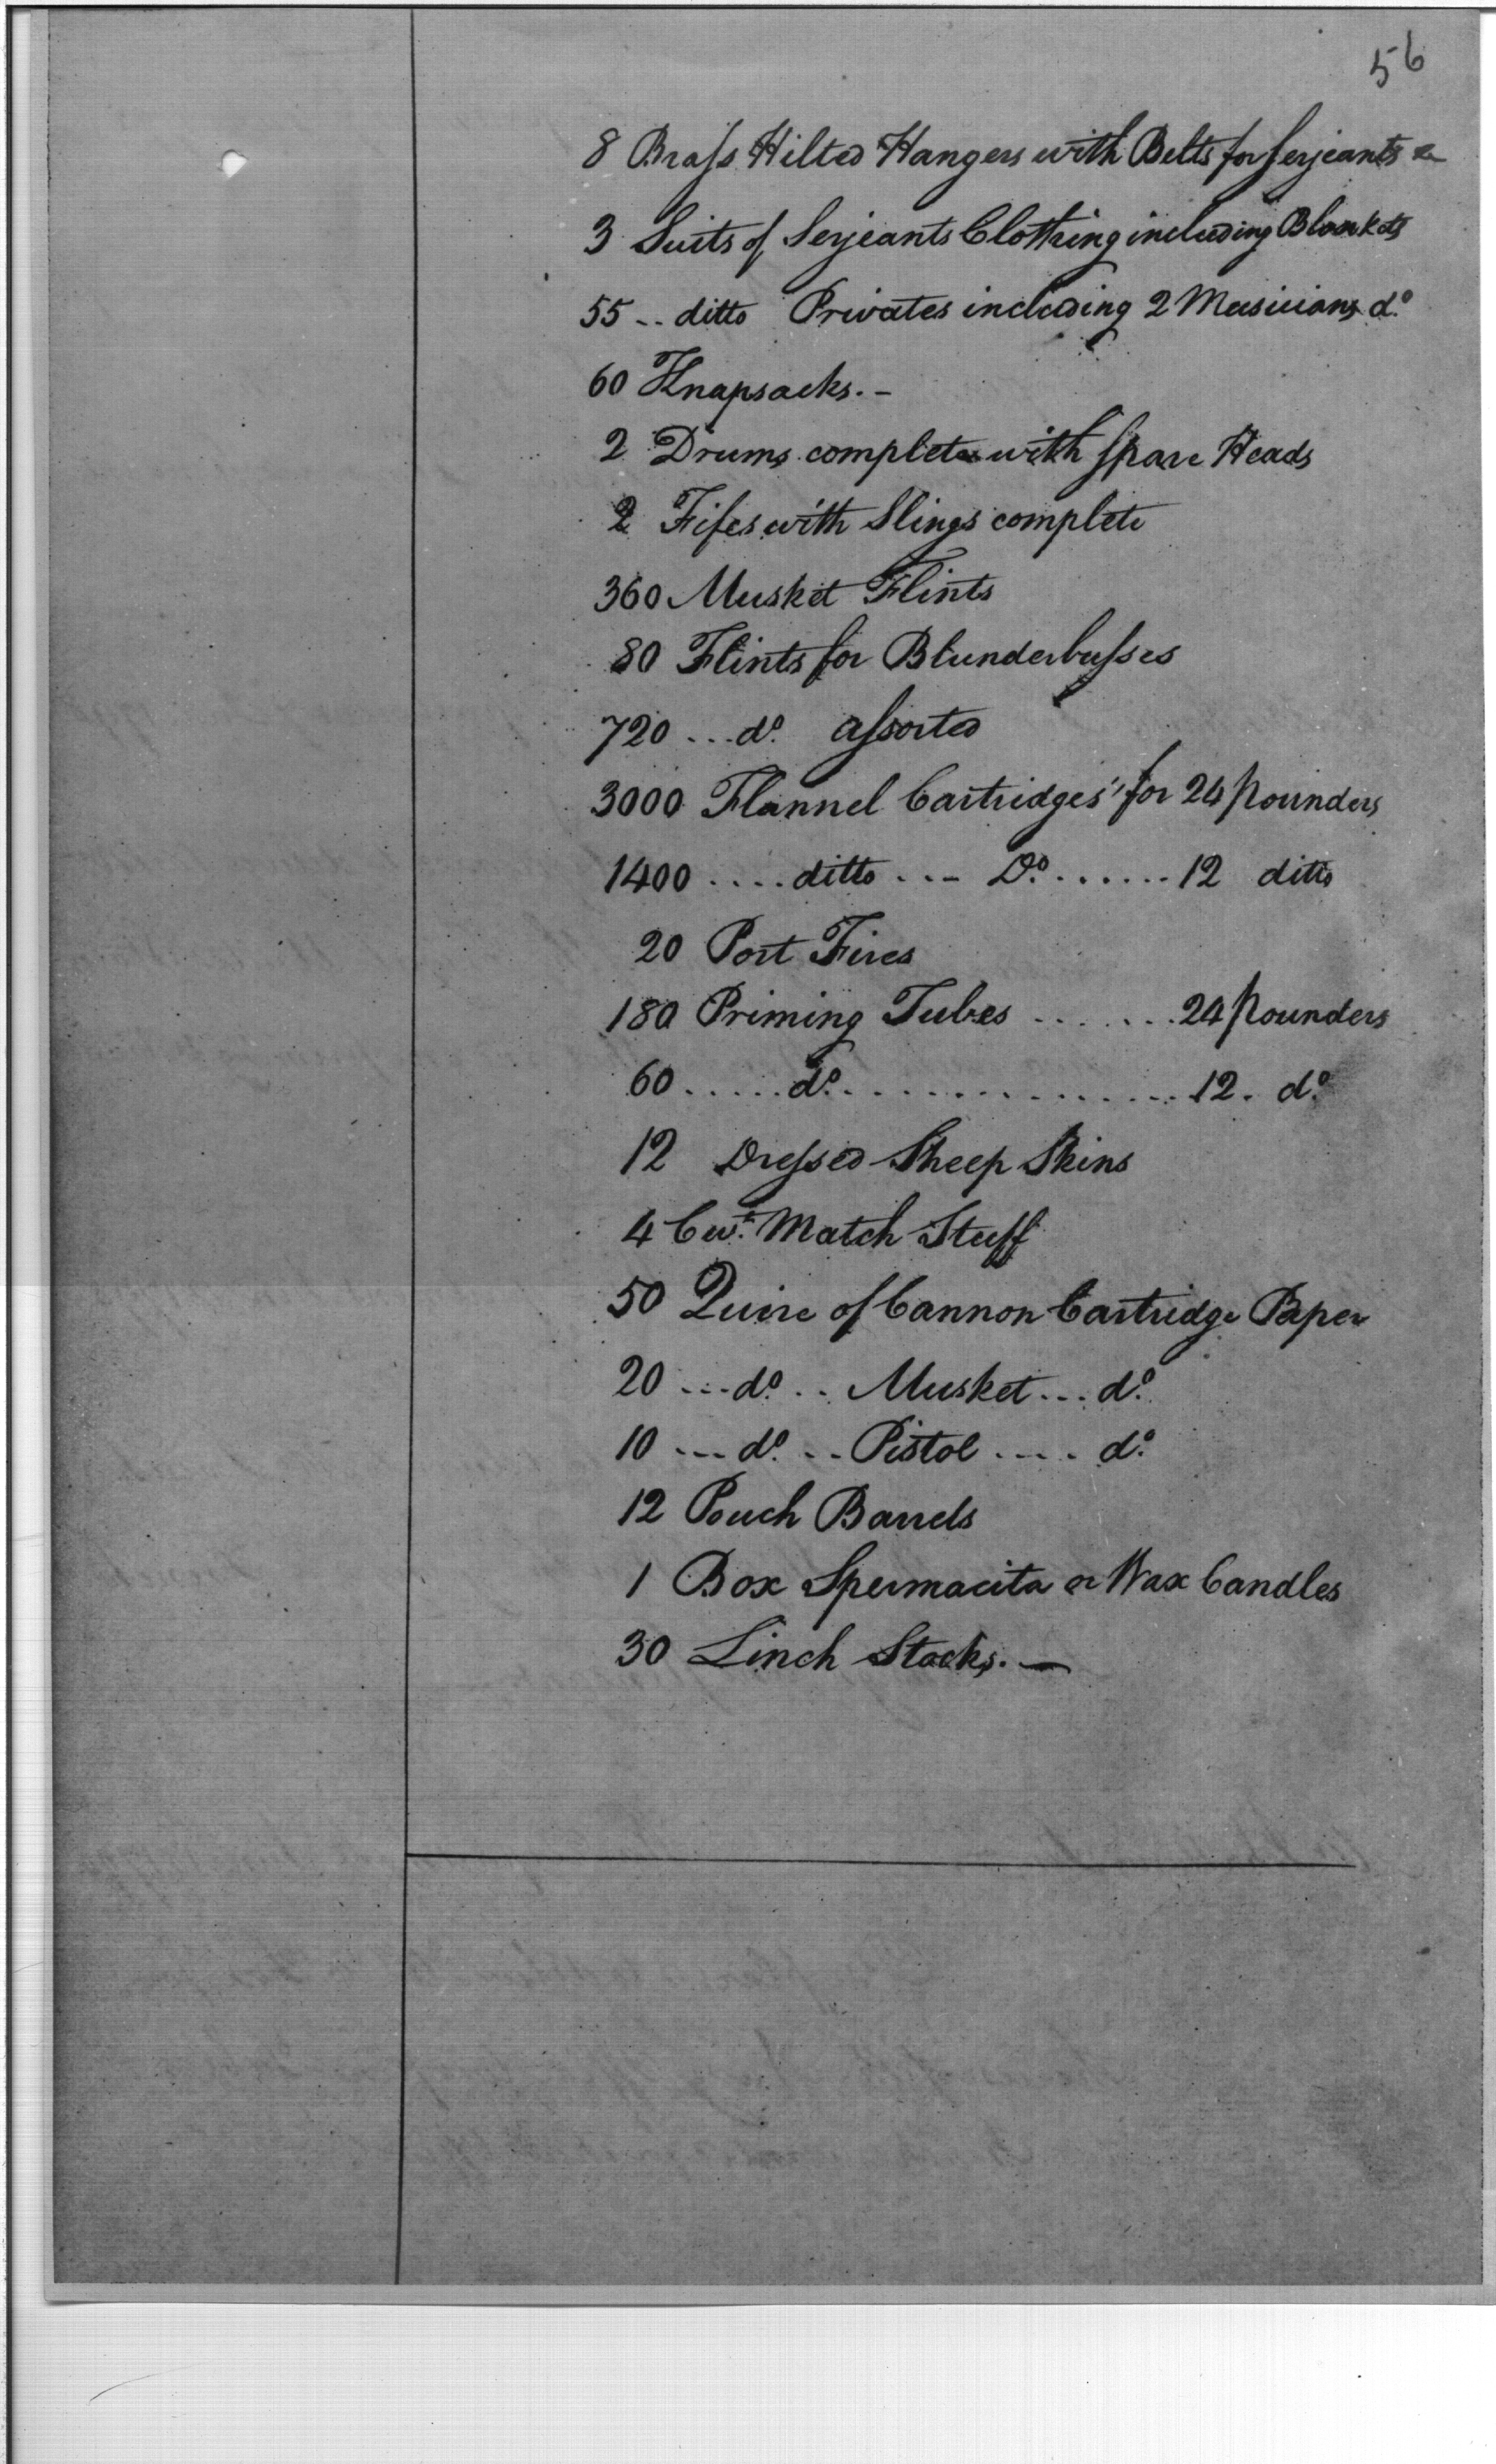 56
8 Brass Hilted Hangers with Belts for Serjeants &
3 Suits of Serjeants Clothing including Blankets
55 .. ditto Privates including 2 Musicians do.
60 Knapsacks. -
2 Drums complete with Spare Heads
2 Fifes with Slings complete
360 Musket Flints
80 Flints for Blunderbusses
720 ... do. assorted
3000 Flannel Cartridges for 24 pounders
1400 .... ditto ... Do. ...... 12 ditto
20 Port Fires
180 Priming Tubes ....... 24 pounders
60 ..... do. ................ 12. do.
12 Dressed Sheep Skins
4 Cwt. Match Stuff
50 Quire of Cannon Cartridge Paper
20 ... do. .. Musket ... do.
10 ... do. .. Pistol .... do.
12 Pouch Barrels
1 Box Spermacita or Wax Candles
30 Linch Stocks. —